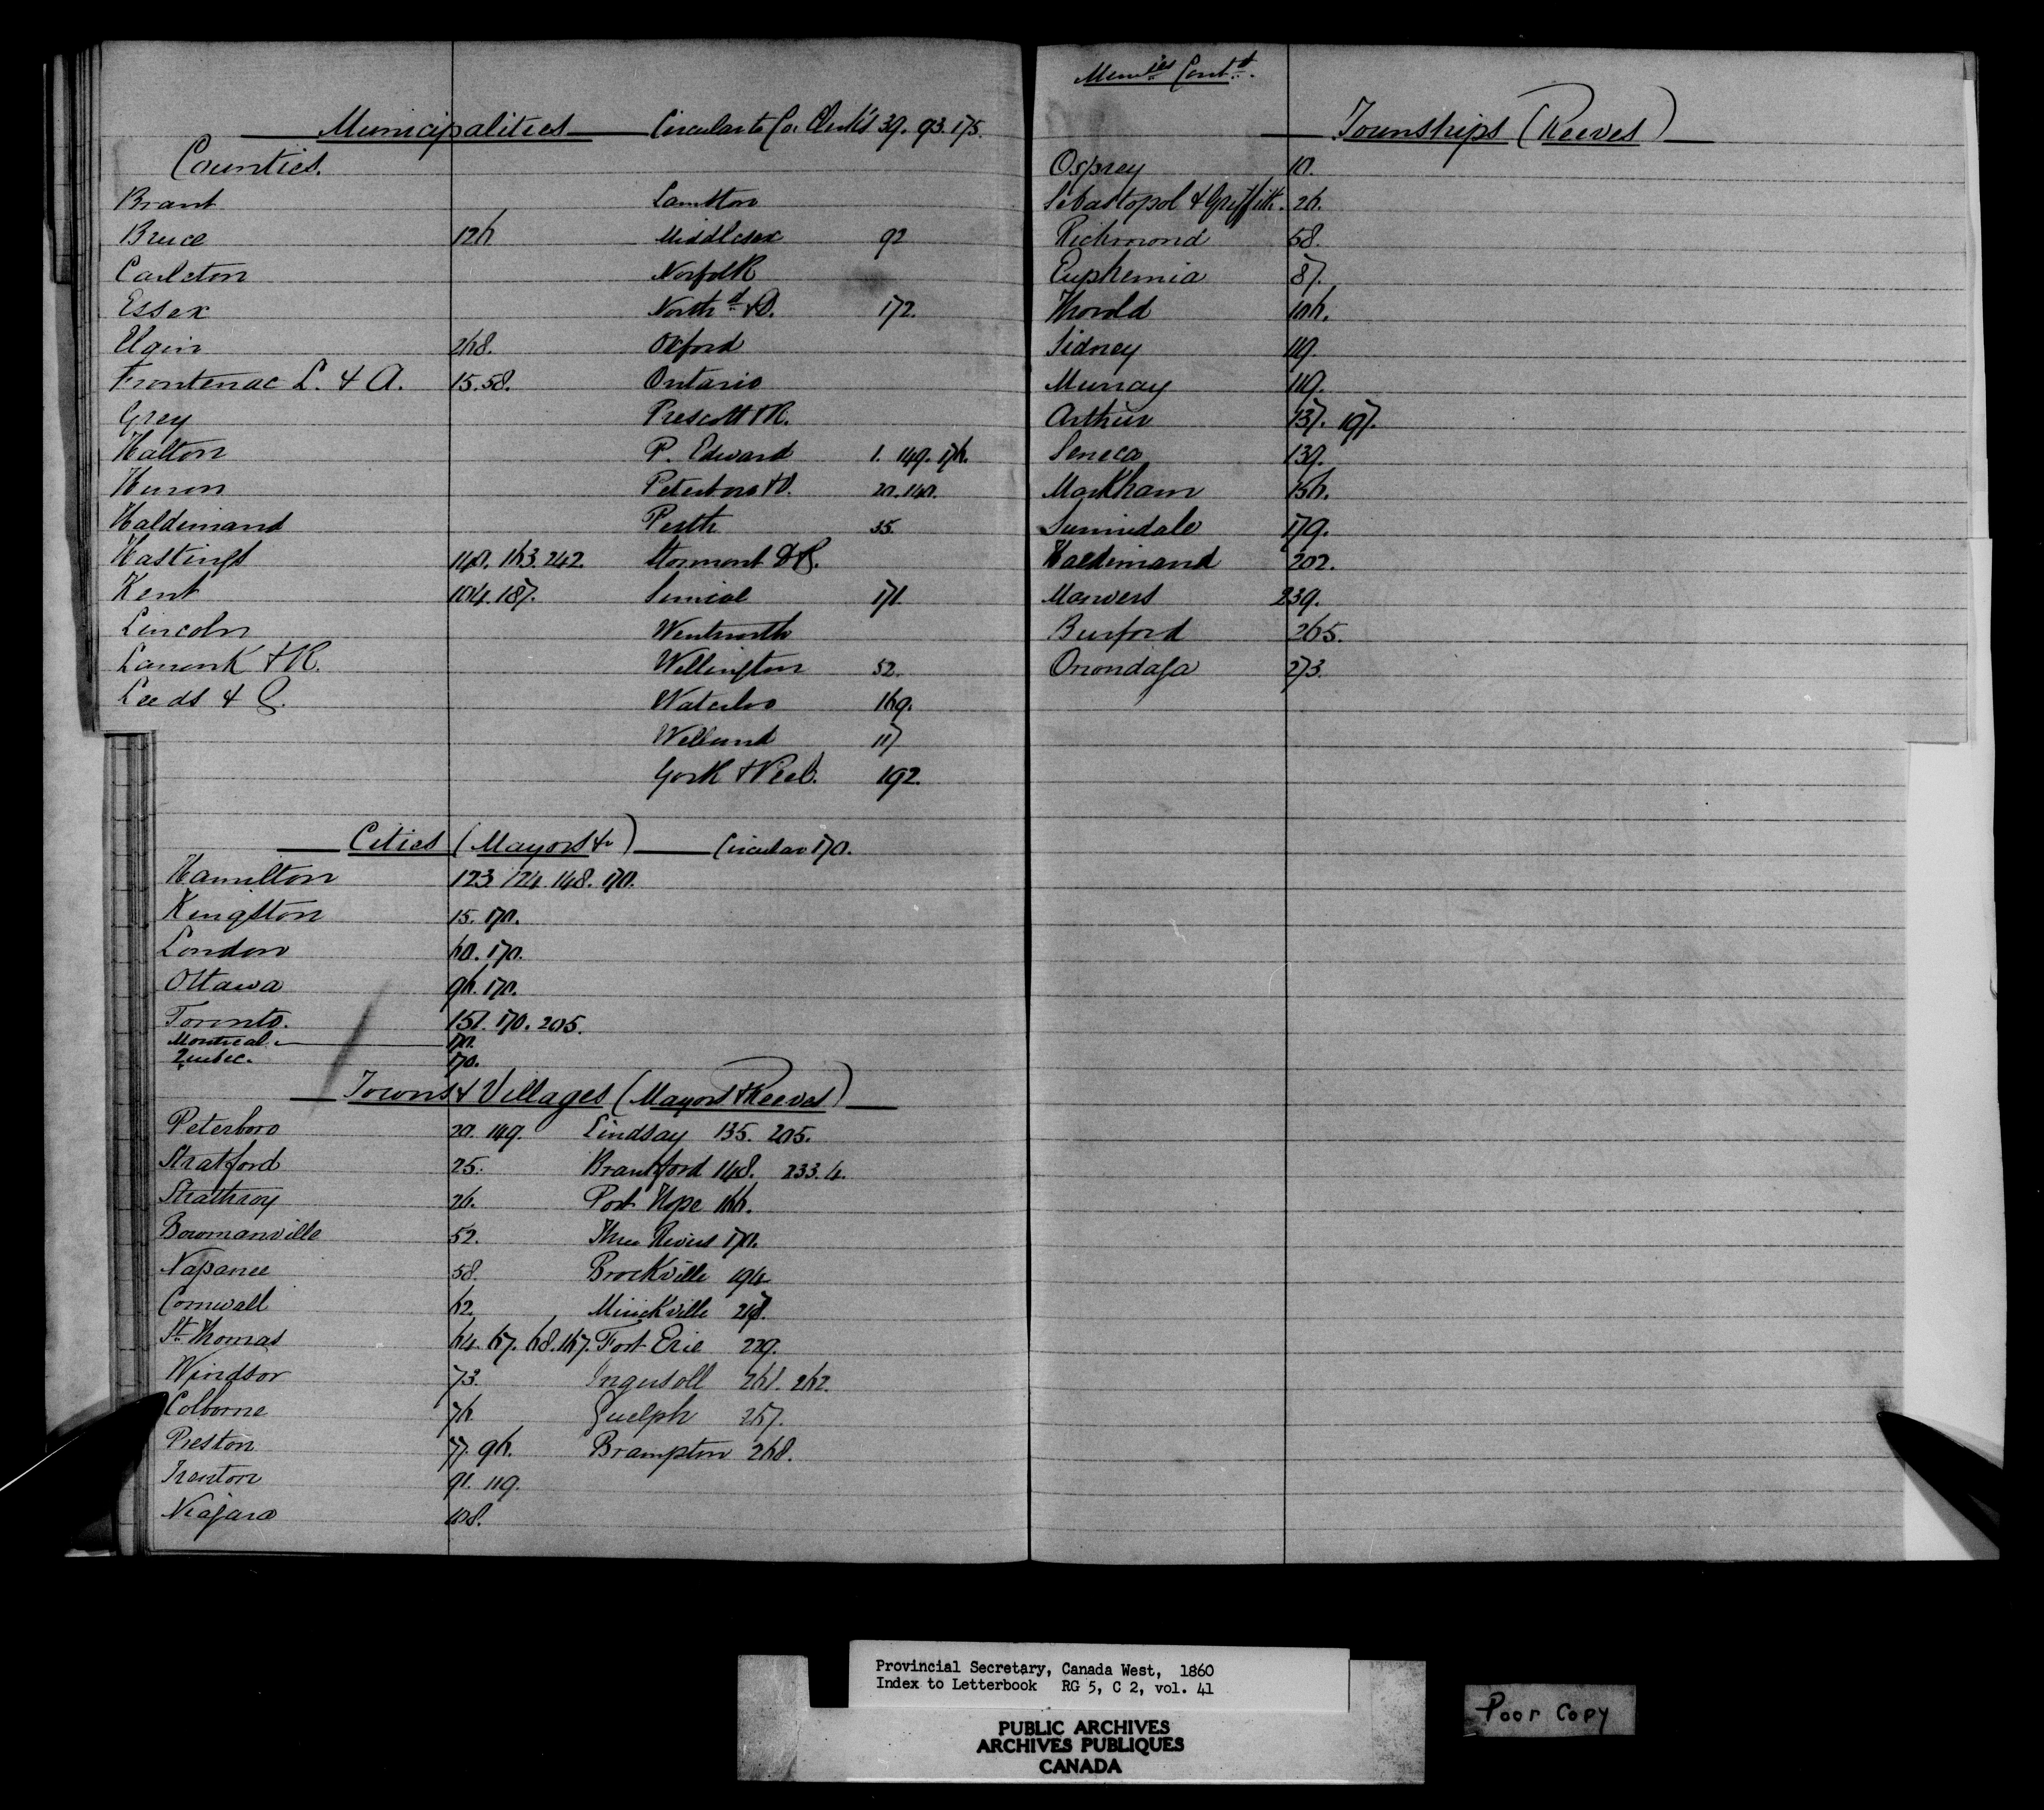 Municipalities Circular to Co. Clerks 39. 93. 175.
Counties.
Brant
Bruce 126
Carleton
Essex
Elgin 268.
Frontenac L. & A. 15. 58.
Grey
Halton
Huron
Haldimand
Hastings 140. 163. 242.
Kent 104. 187.
Lincoln
Lanark & R.
Leeds & G.
Lambton
Middlesex 92
Norfolk
North'd & D. 172.
Oxford
Ontario
Prescott & R.
P. Edward 1. 149. 176.
Peterboro & V. 20. 140.
Perth 35.
Stormont D & G.
Simcoe 171.
Wentworth
Wellington 52.
Waterloo 169.
Welland 117
York & Peel. 192.
Cities (Mayors &c) Circular 170.
Hamilton 123 124 148. 170.
Kingston 15. 170.
London 60. 170.
Ottawa 96. 170.
Toronto. 151. 170. 205.
Montreal. 170.
Quebec. 170.
Towns & Villages (Mayors & Reeves)
Peterboro 20. 149.
Stratford 25.
Strathroy 26.
Bowmanville 52.
Napanee 58.
Cornwall 62.
St. Thomas 64. 67. 68. 167.
Windsor 73.
Colborne 76
Preston 77. 96.
Trenton 91. 119.
Niagara 108.
Lindsay 135. 205.
Brantford 148. 233.4.
Port Hope 166.
Three Rivers 170.
Brockville 194
Mirickville
Fort Erie 229.
Ingersoll 261. 262.
Guelph 267.
Brampton 268.
Munies Cont'd.
Townships (Reeves)
Osprey 10.
Sebastopol & Griffith. 26.
Richmond 58.
Euphemia 87.
Thorold 106.
Sidney 119.
Murray 119.
Arthur 137. 197.
Seneca 139.
Markham 156.
Sunnidale 179.
Haldimand 202.
Manvers 239.
Burford 265.
Onondaga 273.
Provincial Secretary, Canada West, 1860
Index to Letterbook RG 5, C 2, vol. 41
PUBLIC ARCHIVES
ARCHIVES PUBLIQUES
CANADA
Poor Copy